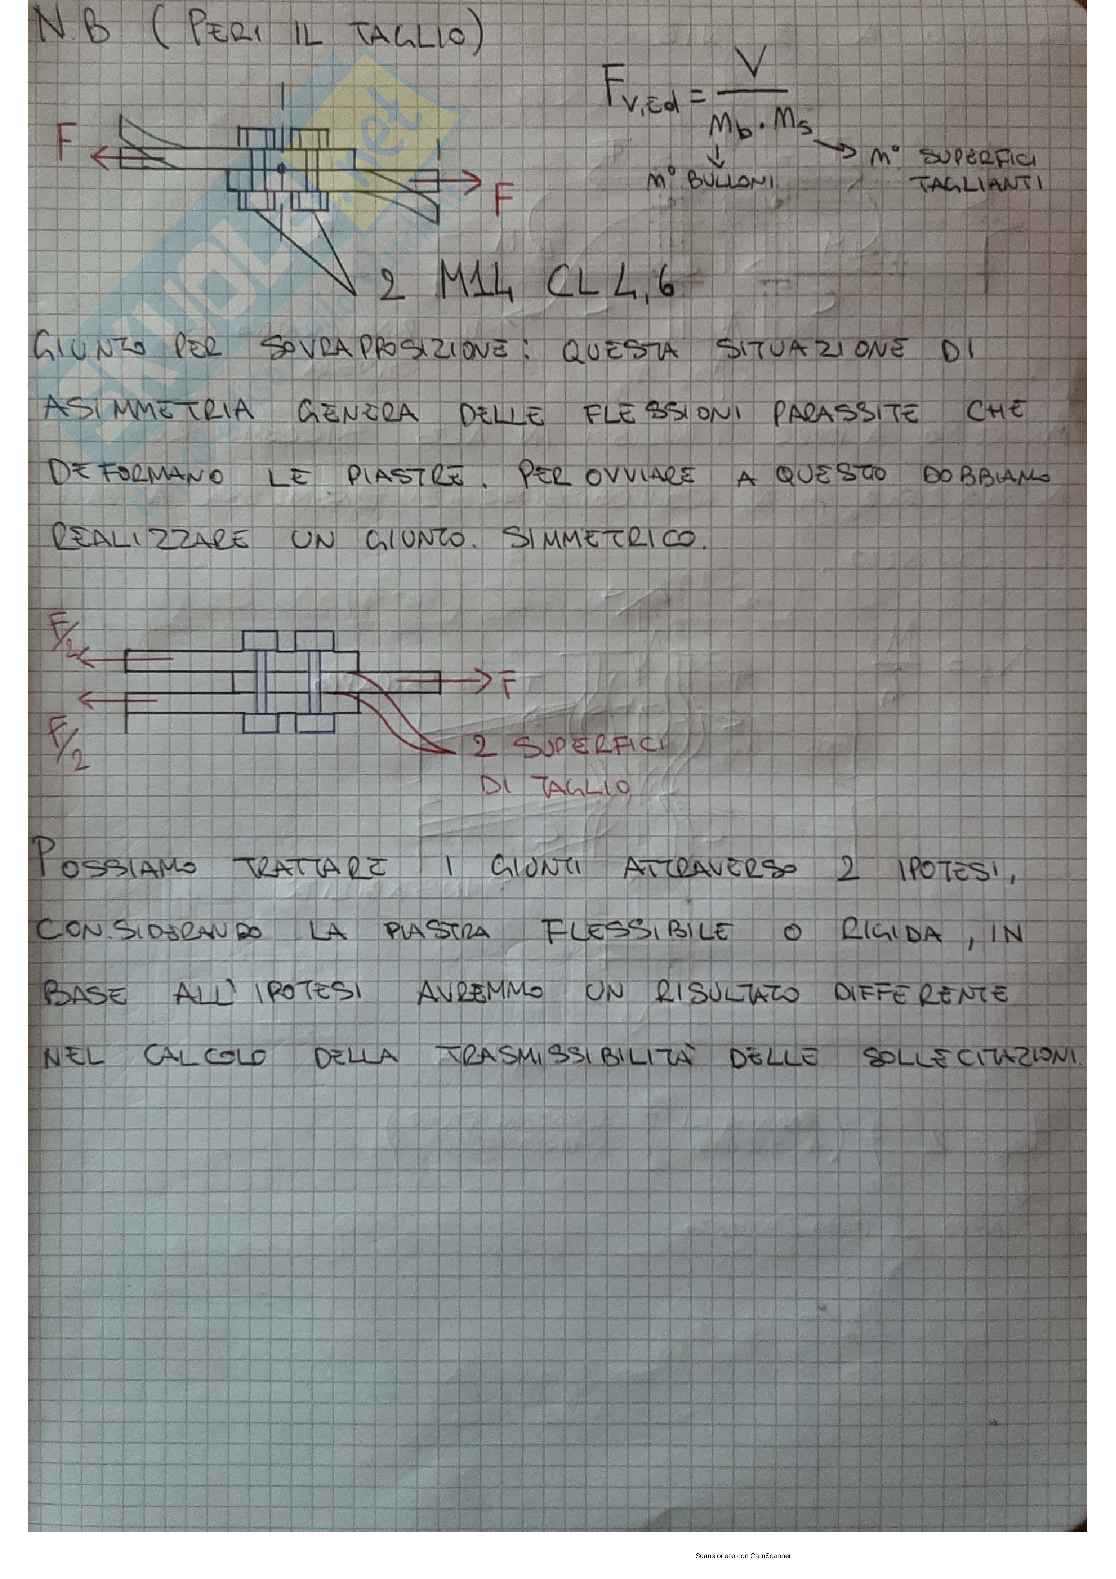 N.B (PER IL TAGLIO)
Fv,Ed = V / mb · ms
m° SUPERFICI
TAGLIANTI
m° BULLONI
F
F
2 M14 CL 4,6
GIUNTO PER SOVRAPPOSIZIONE: QUESTA SITUAZIONE DI
ASIMMETRIA GENERA DELLE FLESSIONI PARASSITE CHE
DEFORMANO LE PIASTRE. PER OVVIARE A QUESTO DOBBIAMO
REALIZZARE UN GIUNTO SIMMETRICO.
F/2
F
F/2
2 SUPERFICI
DI TAGLIO
POSSIAMO TRATTARE I GIUNTI ATTRAVERSO 2 IPOTESI,
CONSIDERANDO LA PIASTRA FLESSIBILE O RIGIDA, IN
BASE ALL'IPOTESI AVREMMO UN RISULTATO DIFFERENTE
NEL CALCOLO DELLA TRASMISSIBILITÀ DELLE SOLLECITAZIONI.
SKUOLA.net
Scansionato con CamScanner